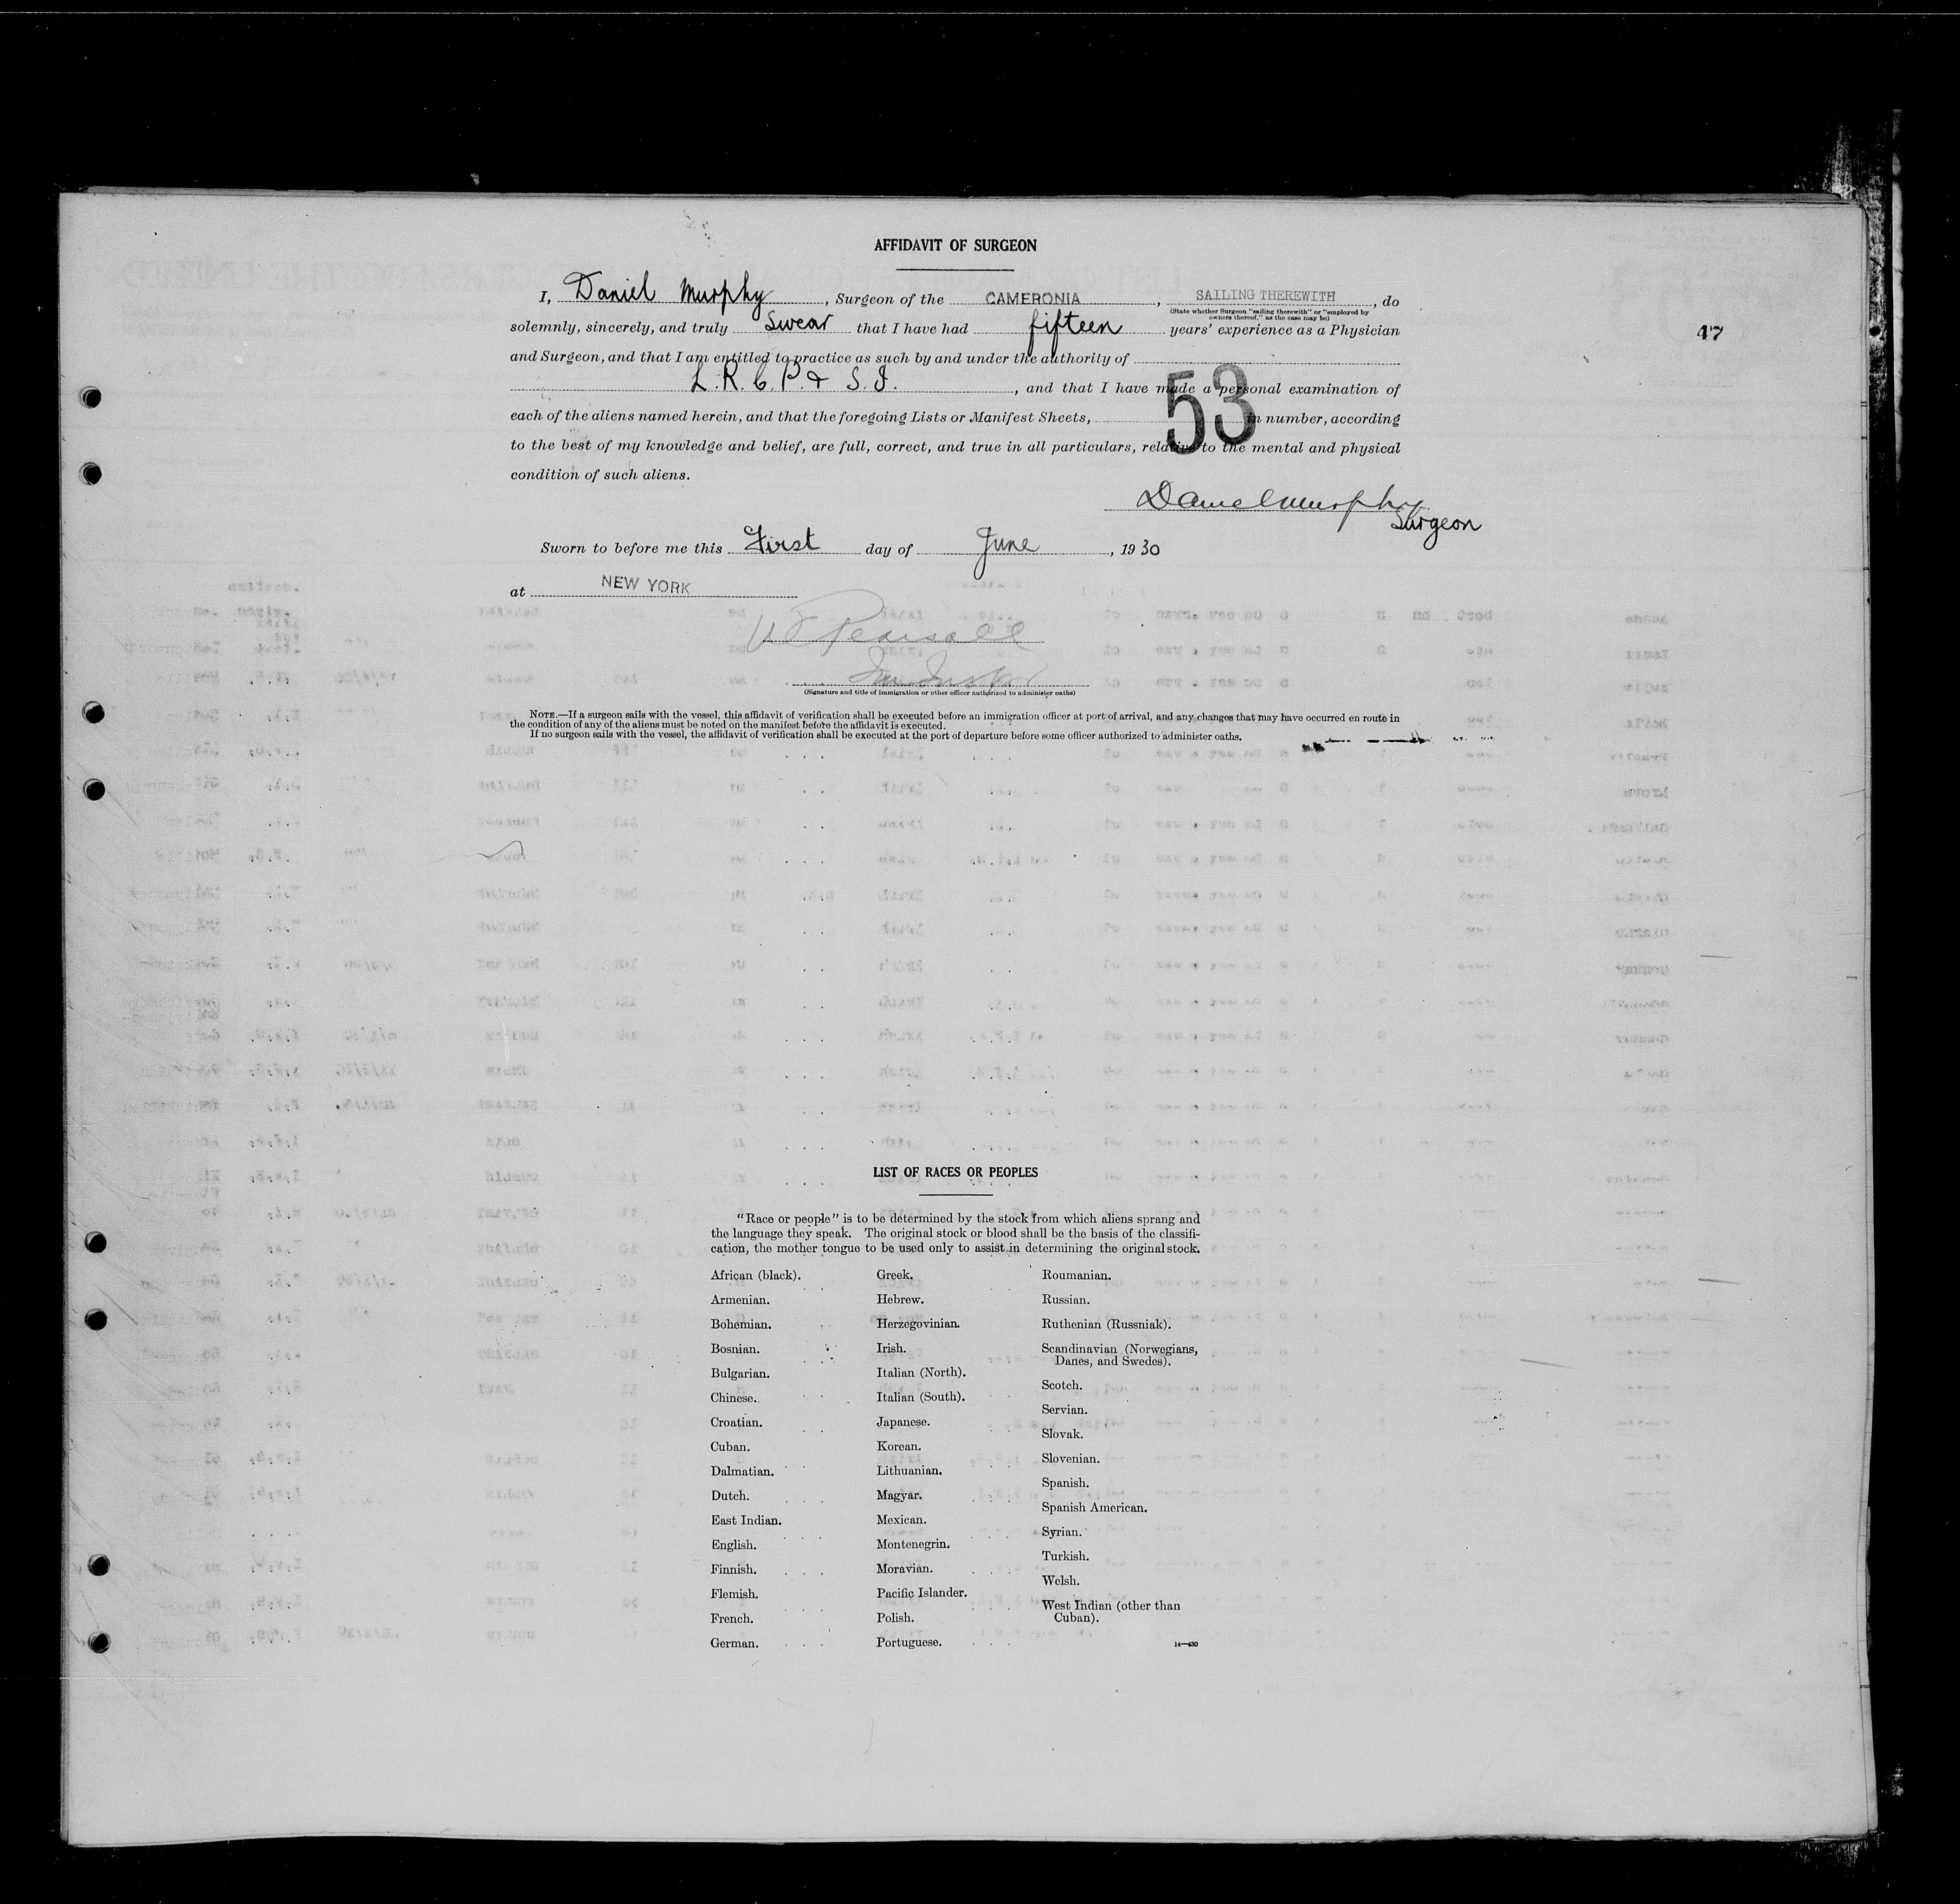 AFFIDAVIT OF SURGEON
I, Daniel Murphy, Surgeon of the CAMERONIA, SAILING THEREWITH, do
(State whether Surgeon "sailing therewith" or "employed by
owners thereof," as the case may be)
solemnly, sincerely, and truly swear that I have had fifteen years' experience as a Physician
47
and Surgeon, and that I am entitled to practice as such by and under the authority of
L.R.C.P. & S.I., and that I have made a personal examination of
53
each of the aliens named herein, and that the foregoing Lists or Manifest Sheets, in number, according
to the best of my knowledge and belief, are full, correct, and true in all particulars, relative to the mental and physical
condition of such aliens.
Daniel Murphy
Surgeon
Sworn to before me this First day of June, 1930
at NEW YORK
Pearsall
(Signature and title of immigration or other officer authorized to administer oaths)
NOTE.—If a surgeon sails with the vessel, this affidavit of verification shall be executed before an immigration officer at port of arrival, and any changes that may have occurred en route in
the condition of any of the aliens must be noted on the manifest before the affidavit is executed.
If no surgeon sails with the vessel, the affidavit of verification shall be executed at the port of departure before some officer authorized to administer oaths.
LIST OF RACES OR PEOPLES
"Race or people" is to be determined by the stock from which aliens sprang and
the language they speak. The original stock or blood shall be the basis of the classifi-
cation, the mother tongue to be used only to assist in determining the original stock.
African (black).
Armenian.
Bohemian.
Bosnian.
Bulgarian.
Chinese.
Croatian.
Cuban.
Dalmatian.
Dutch.
East Indian.
English.
Finnish.
Flemish.
French.
German.
Greek.
Hebrew.
Herzegovinian.
Irish.
Italian (North).
Italian (South).
Japanese.
Korean.
Lithuanian.
Magyar.
Mexican.
Montenegrin.
Moravian.
Pacific Islander.
Polish.
Portuguese.
Roumanian.
Russian.
Ruthenian (Russniak).
Scandinavian (Norwegians,
Danes, and Swedes).
Scotch.
Servian.
Slovak.
Slovenian.
Spanish.
Spanish American.
Syrian.
Turkish.
Welsh.
West Indian (other than
Cuban).
14—430